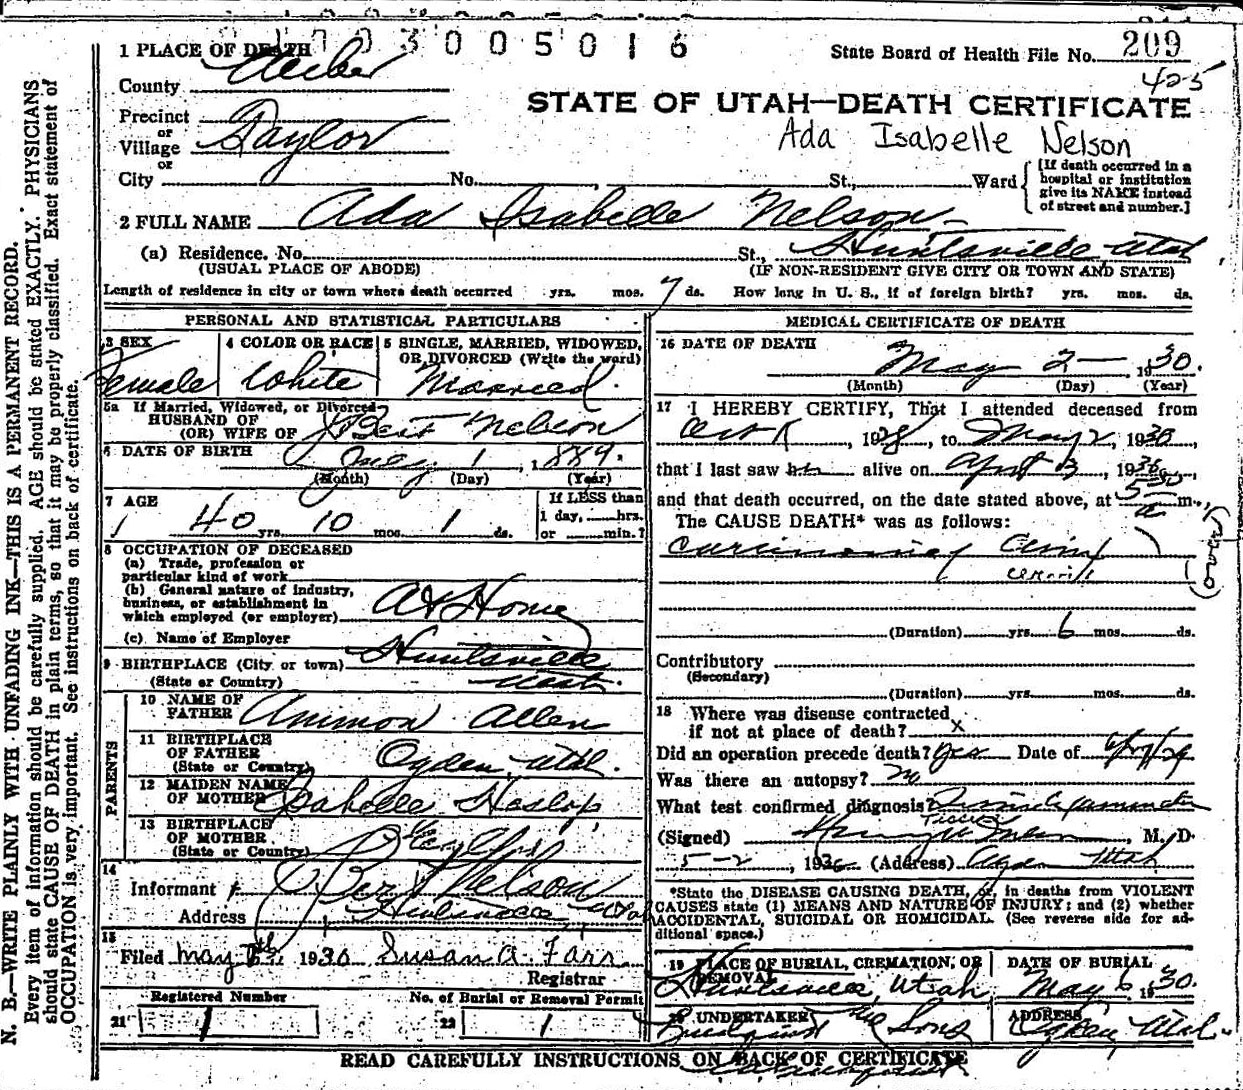 0 1 7 0 3 0 0 5 0 1 6
State Board of Health File No. 209
425
1 PLACE OF DEATH
County Weber
STATE OF UTAH—DEATH CERTIFICATE
Precinct
or
Village Taylor
Ada Isabelle Nelson
or
City No. St., Ward
[If death occurred in a
hospital or institution
give its NAME instead
of street and number.]
2 FULL NAME Ada Isabelle Nelson
(a) Residence. No. St., Huntsville Utah
(USUAL PLACE OF ABODE) (IF NON-RESIDENT GIVE CITY OR TOWN AND STATE)
Length of residence in city or town where death occurred yrs. mos. 7 ds. How long in U. S., if of foreign birth? yrs. mos. ds.
PERSONAL AND STATISTICAL PARTICULARS
3 SEX 4 COLOR OR RACE 5 SINGLE, MARRIED, WIDOWED,
OR DIVORCED (Write the word)
Female White Married.
5a If Married, Widowed, or Divorced
HUSBAND OF
(OR) WIFE OF Bert Nelson
6 DATE OF BIRTH July 1, 1889.
(Month) (Day) (Year)
7 AGE If LESS than
40 yrs. 10 mos. 1 ds. 1 day, hrs.
or min.?
8 OCCUPATION OF DECEASED
(a) Trade, profession or
particular kind of work
(b) General nature of industry,
business, or establishment in
which employed (or employer) At Home
(c) Name of Employer
9 BIRTHPLACE (City or town) Huntsville
(State or Country) Utah.
PARENTS
10 NAME OF
FATHER Ammon Allen
11 BIRTHPLACE
OF FATHER
(State or Country) Ogden, Utah.
12 MAIDEN NAME
OF MOTHER Isabelle Heslop
13 BIRTHPLACE
OF MOTHER
(State or Country)
14
Informant Bert Nelson
Address Huntsville Utah
15
Filed May 1930 Susan A. Farr
Registrar
Registered Number No. of Burial or Removal Permit
21 1 22 1
MEDICAL CERTIFICATE OF DEATH
16 DATE OF DEATH
May 2 — 1930.
(Month) (Day) (Year)
17 I HEREBY CERTIFY, That I attended deceased from
, 1928, to May 2, 1930,
that I last saw her alive on April 13, 1930
and that death occurred, on the date stated above, at 5 30 a m.,
The CAUSE DEATH* was as follows:
(Duration) yrs. 6 mos. ds.
Contributory
(Secondary)
(Duration) yrs. mos. ds.
18 Where was disease contracted
if not at place of death? X
Did an operation precede death? Yes Date of
Was there an autopsy? No
What test confirmed diagnosis?
(Signed) , M. D.
5-2, 1930 (Address) Ogden Utah
*State the DISEASE CAUSING DEATH, or, in deaths from VIOLENT
CAUSES state (1) MEANS AND NATURE OF INJURY; and (2) whether
ACCIDENTAL, SUICIDAL OR HOMICIDAL. (See reverse side for ad-
ditional space.)
19 PLACE OF BURIAL, CREMATION, OR
REMOVAL DATE OF BURIAL
Huntsville, Utah May 6, 1930.
20 UNDERTAKER ADDRESS
& Sons Ogden, Utah.
READ CAREFULLY INSTRUCTIONS ON BACK OF CERTIFICATE
N. B.—WRITE PLAINLY WITH UNFADING INK—THIS IS A PERMANENT RECORD.
Every item of information should be carefully supplied. AGE should be stated EXACTLY. PHYSICIANS
should state CAUSE OF DEATH in plain terms, so that it may be properly classified. Exact statement of
OCCUPATION is very important. See instructions on back of certificate.